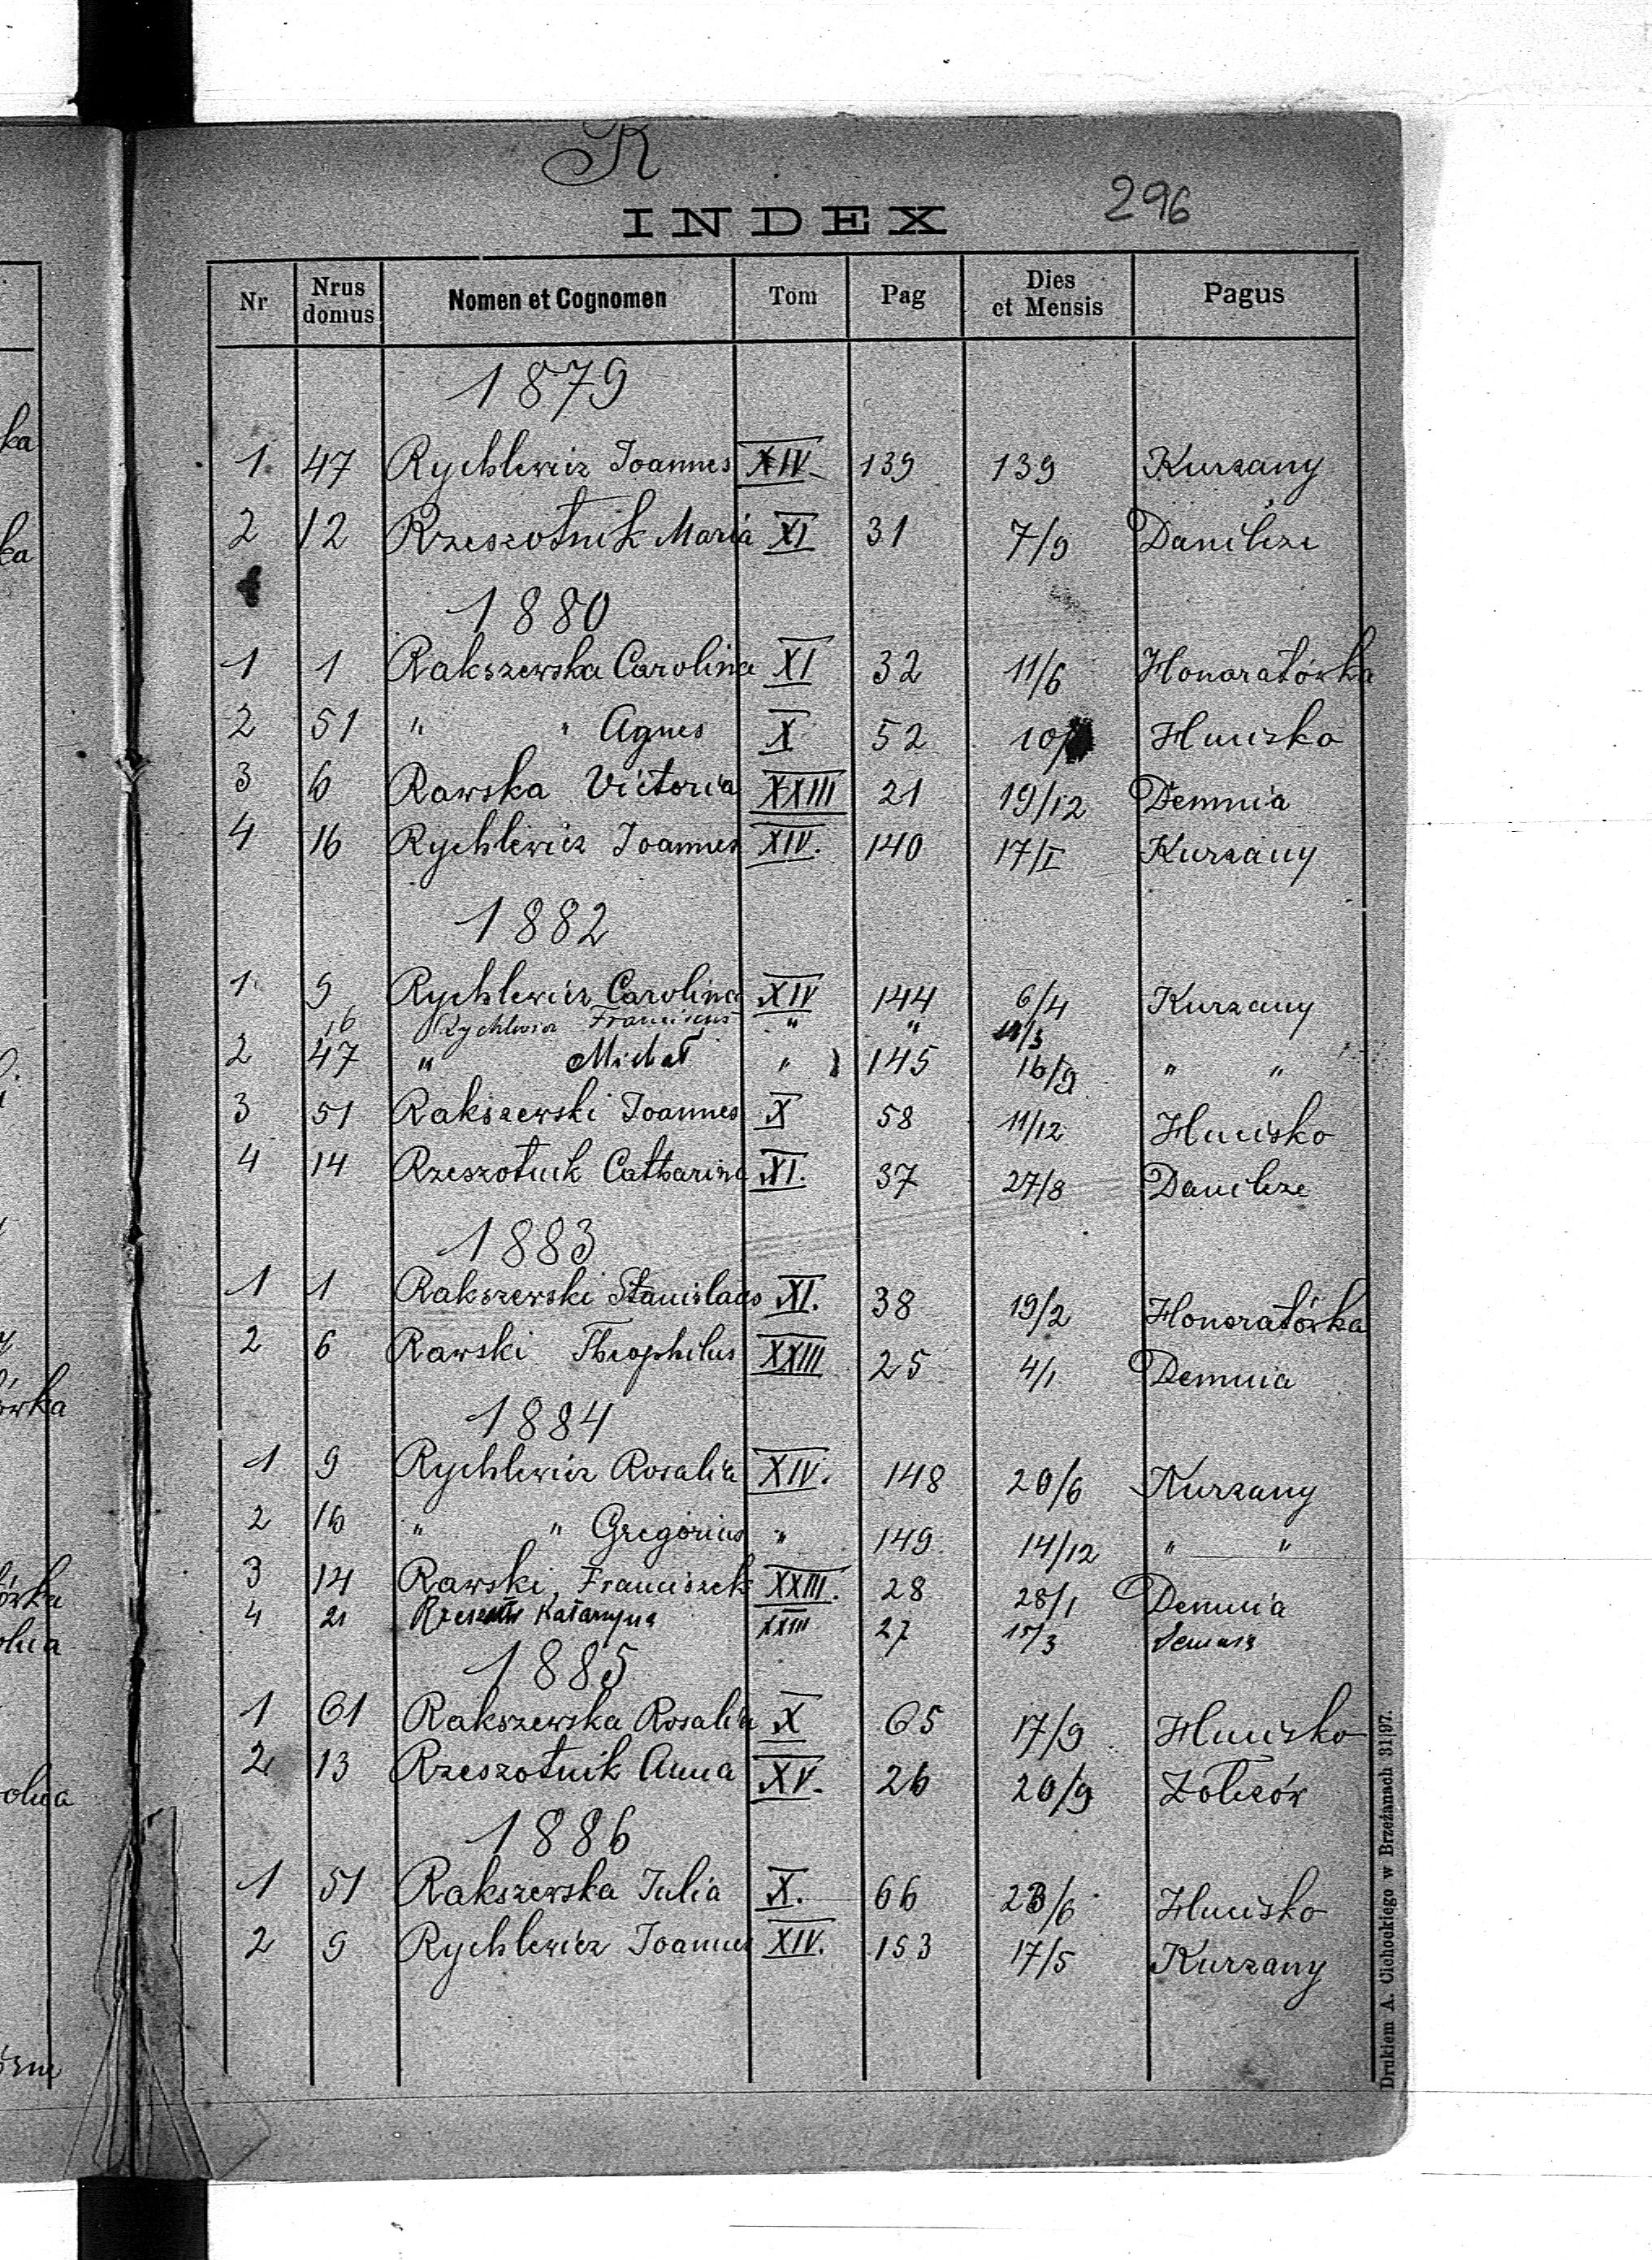 R
296
INDEX
Nr Nrus domus Nomen et Cognomen Tom Pag Dies et Mensis Pagus
1879
1 47 Rychlewicz Joannes XIV 139 139 Kurzany
2 12 Rzeszotnik Maria XI 31 7/9 Danilcze
1880
1 1 Rakszewska Carolina XI 32 11/6 Honoratówka
2 51 " " Agnes X 52 10/ Hucisko
3 6 Rawska Victoria XXIII 21 19/12 Demnia
4 16 Rychlewicz Joannes XIV. 140 17/I Kurzany
1882
1 9 Rychlewicz Carolina XIV 144 6/4 Kurzany
16 Rychlewicz Franciscus " "
2 47 " Michał " 145 16/9 " "
3 51 Rakszewski Joannes X 58 11/12 Hucisko
4 14 Rzeszotnik Catharina XI. 37 27/8 Danilcze
1883
1 1 Rakszewski Stanislaus XI. 38 19/2 Honoratówka
2 6 Rawski Theophilus XXIII 25 4/1 Demnia
1884
1 9 Rychlewicz Rosalia XIV. 148 20/6 Kurzany
2 16 " " Gregorius " 149 14/12 " "
3 14 Rawski Franciszek XXIII. 28 28/1 Demnia
4 21 Katarzyna XXIII 27 15/3 Demnia
1885
1 61 Rakszewska Rosalia X 65 17/9 Hucisko
2 13 Rzeszotnik Anna XV. 26 20/9 Żołczów
1886
1 51 Rakszewska Julia X. 66 23/6 Hucisko
2 9 Rychlewicz Joannes XIV. 153 17/5 Kurzany
Drukiem A. Cichockiego w Brzeżanach 31|97.